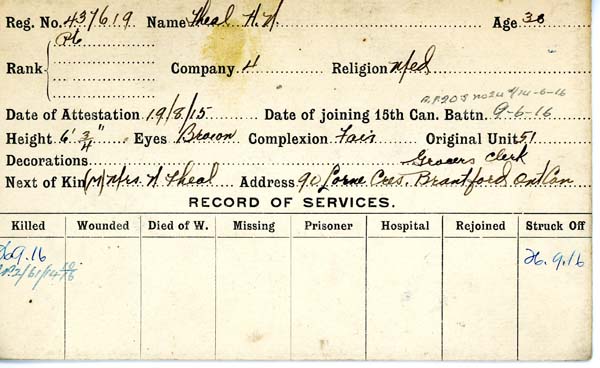 Reg. No. 437619 Name Theal H. H. Age 38
Rank Pte Company 4 Religion Med
A.F.20J no24 9/14-6-16
Date of Attestation 19/8/15 Date of joining 15th Can. Battn. 9-6-16
Height 6' 3/4" Eyes Brown Complexion Fair Original Unit 51
Decorations Grocers Clerk
Next of Kin (M) Mrs. H Theal Address 90 Lorne Cres. Brantford Ont Can
RECORD OF SERVICES.
Killed Wounded Died of W. Missing Prisoner Hospital Rejoined Struck Off
26.9.16 26.9.16